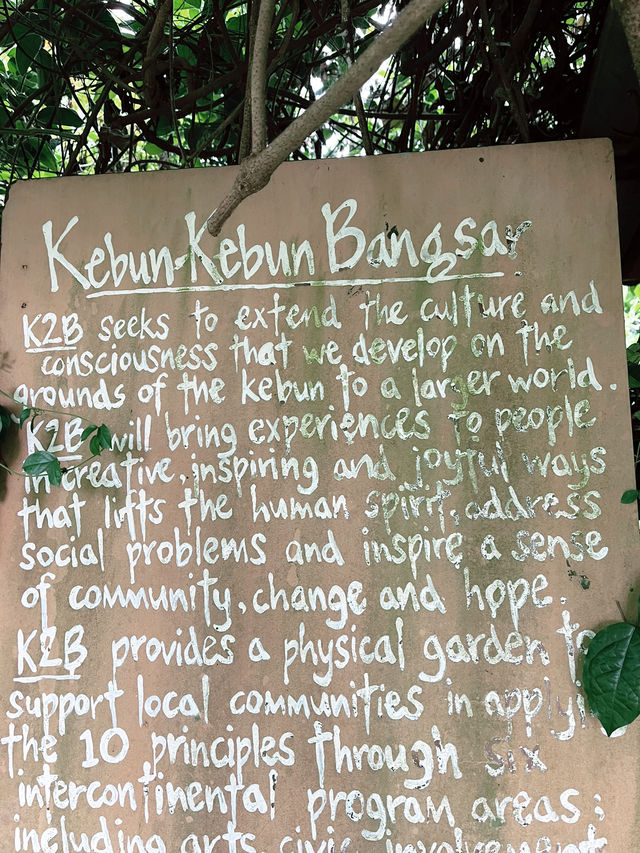 Kebun-Kebun Bangsar
K2B seeks to extend the culture and
consciousness that we develop on the
grounds of the kebun to a larger world.
K2B will bring experiences to people
in creative, inspiring and joyful ways
that lifts the human spirit, address
social problems and inspire a sense
of community, change and hope.
K2B provides a physical garden to
support local communities in applying
the 10 principles through six
intercontinental program areas;
including arts, civic involvement